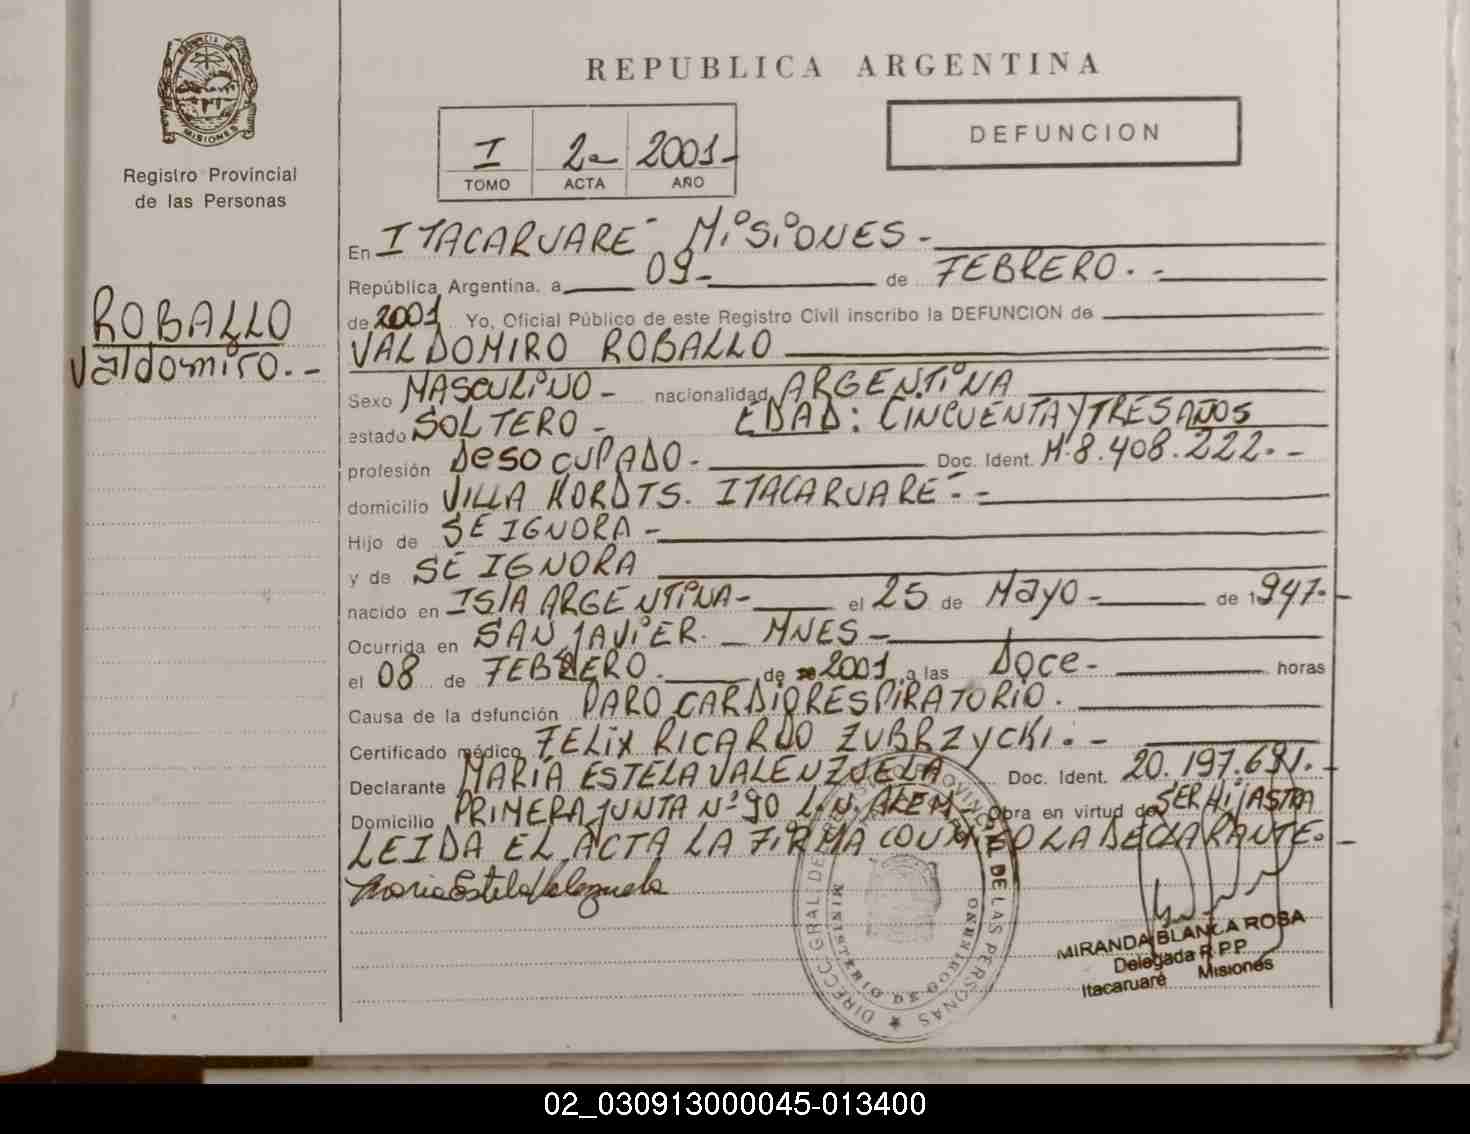 MISIONES
Registro Provincial
de las Personas
ROBALLO
Valdomiro.-
REPUBLICA ARGENTINA
I 2- 2001-
TOMO ACTA AÑO
DEFUNCION
En ITACARUARE - MISIONES -
República Argentina, a 09- de FEBRERO. -
de 2001 Yo, Oficial Público de este Registro Civil inscribo la DEFUNCION de
VALDOMIRO ROBALLO
Sexo MASCULINO - nacionalidad ARGENTINA
estado SOLTERO - EDAD: CINCUENTA Y TRES AÑOS
profesión DESOCUPADO - Doc. Ident. M.8.408.222. -
domicilio VILLA ITACARUARE - -
Hijo de SE IGNORA -
y de SE IGNORA
nacido en ISLA ARGENTINA - el 25 de Mayo - de 1947. -
Ocurrida en SAN JAVIER. - MNES -
el 08 de FEBRERO. de 2001 a las Doce - horas
Causa de la defunción PARO CARDIORESPIRATORIO.
Certificado médico FELIX RICARDO ZUBRZYCKI. -
Declarante MARIA ESTELA VALENZUELA Doc. Ident. 20.197.691. -
Domicilio PRIMERA JUNTA Nº 90 L.N. ALEM - Obra en virtud de SER HIJASTRA
LEIDA EL ACTA LA FIRMA CONMIGO LA DECLARANTE. -
Maria Estela Valenzuela
DIRECC. GRAL. DE PROVINCIAL DE LAS PERSONAS
MINISTERIO DE GOBIERNO
MIRANDA BLANCA ROSA
Delegada R.P.P.
Itacaruaré Misiones
02_030913000045-013400